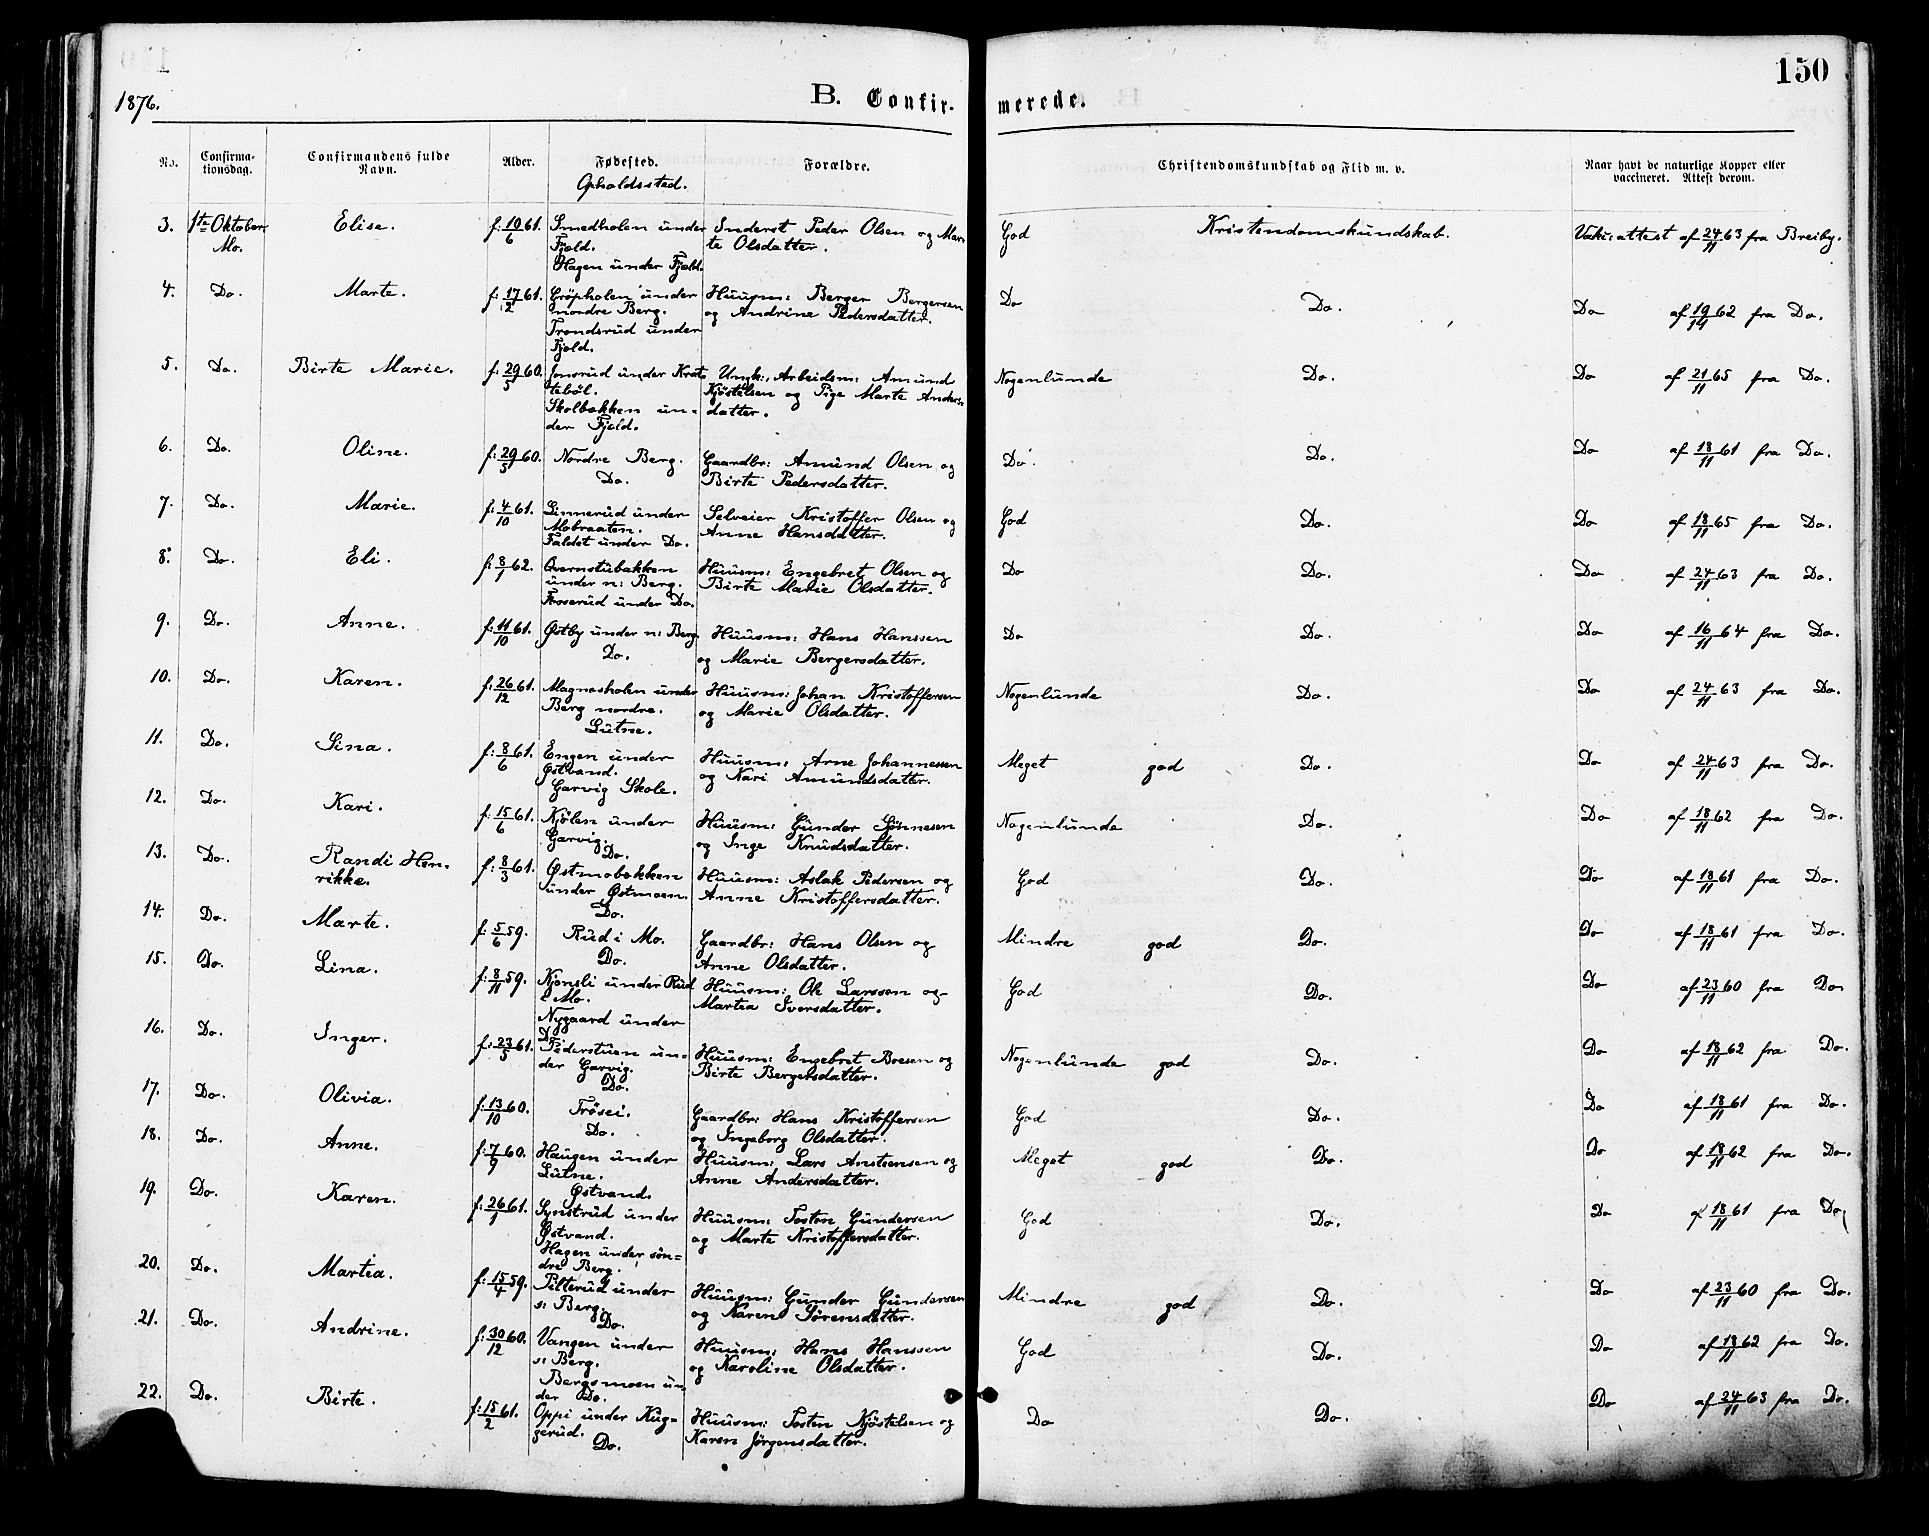 150
1876.
B. Confir- merede.
No. Confirma-tionsdag. Confirmandens fulde Navn. Alder. Fødested. Forældre. Christendomskundskab og Flid m. v. Naar havt de naturlige Kopper eller vaccineret. Attest derom.
Opholdssted.
3. 1ste Oktober Elise. f: 19/6 61. Smedholen under Inderst Peder Olsen og Mar- God Kristendomskundskab. Vakc: attest af 24/11 63 fra Breiby.
Mo. Fjeld. te Olsdatter.
Hagen under Fjeld.
4. Do. Marte. f: 17/2 61. Gröpholen under Huusm: Berger Bergersen Do Do. Do af 19/11 62 fra Do.
nordre Berg. og Andrine Pedersdatter.
Trondsrud under
Fjeld.
5. Do. Birte Marie. f: 29/5 60. Jonsrud under Krat- Ungk:, Arbeidsm: Amund Nogenlunde Do. Do af 21/11 65 fra Do.
teböl. Kjöstelsen og Pige Marte Anders-
Skolbakken un- datter.
der Fjeld.
6. Do. Oline. f: 29/5 60. Nordre Berg. Gaardbr: Amund Olsen og Do. Do. Do af 18/11 61 fra Do.
Do. Birte Pedersdatter.
7. Do. Marie. f: 4/10 61. Linnerud under Selveier Kristoffer Olsen og God Do. Do af 18/11 65 fra Do.
Mobraaten. Anne Hansdatter.
Faldet under Do.
8. Do. Eli. f: 8/1 62. Qvernstubakken Huusm: Engebret Olsen og Do Do. Do af 24/11 63 fra Do.
under n: Berg. Birte Marie Olsdatter.
Fosserud under Do.
9. Do. Anne. f: 11/10 61. Østby under n: Berg Huusm: Hans Hanssen Do Do. Do af 16/11 64 fra Do.
Do. og Marie Bergersdatter.
10. Do. Karen. f: 26/12 61. Magnesholen under Huusm: Johan Kristoffersen Nogenlunde Do. Do af 24/11 63 fra Do.
Berg nordre. og Marie Olsdatter.
Lutne.
11. Do. Sina. f: 8/6 61. Engen under Huusm: Arne Johannessen Meget god Do. Do af 24/11 63 fra Do.
Østvand. og Kari Amundsdatter.
Garvig Skole.
12. Do. Kari. f: 15/6 61. Kjölen under Huusm: Gunder Gjönnesen Nogenlunde Do. Do af 18/11 62 fra Do.
Garvig. og Inge Knudsdatter.
Do.
13. Do. Randi Hen- f: 8/3 61. Østmobakken Huusm: Aslak Pedersen og God Do. Do af 18/11 61 fra Do.
rikke. under Østmoen. Anne Kristoffersdatter.
Do.
14. Do. Marte. f: 5/6 59. Rud i Mo. Gaardbr: Hans Olsen og Mindre god Do. Do af 18/11 61 fra Do.
Do. Anne Olsdatter.
15. Do. Lina. f: 8/11 59. Kjönsli under Rud Huusm: Ole Larssen og God Do. Do af 23/11 60 fra Do
i Mo. Martea Iversdatter.
Nygaard under
Do.
16. Do. Inger. f: 23/5 61. Pederstuen un- Huusm: Engebret Boesen og Nogenlunde god Do. Do af 18/11 62 fra Do.
der Garvig. Birte Bergersdatter.
Do.
17. Do. Olivia. f: 13/10 60. Trösei. Gaardbr: Hans Kristoffersen God Do. Do af 18/11 61 fra Do.
Do. og Ingeborg Olsdatter.
18. Do. Anne. f: 7/9 60. Haugen under Huusm: Lars Anstensen og Meget god Do. Do af 18/11 62 fra Do.
Lutne. Anne Andersdatter.
Østvand.
19. Do. Karen. f: 26/1 61. Synstrud under Huusm: Tosten Gundersen God Do. Do af 18/11 61 fra Do
Østvand. og Marte Kristoffersdatter.
Hagen under sön-
dre Berg.
20. Do. Martea. f: 15/4 59. Pilterud under Huusm: Gunder Gundersen Mindre god Do. Do af 23/11 60 fra Do.
s: Berg. og Karen Sørensdatter.
Do.
21. Do. Andrine. f: 30/12 60. Vangen under Huusm: Hans Hanssen God Do. Do af 18/11 62 fra Do.
s: Berg. og Karoline Olsdatter.
Bergsmoen un-
der Do.
22. Do. Birte. f: 15/2 61. Oppi under Kug- Huusm: Tosten Kjöstelsen og Do Do. Do af 24/11 63 fra Do.
gerud. Karen Jörgensdatter.
Do.